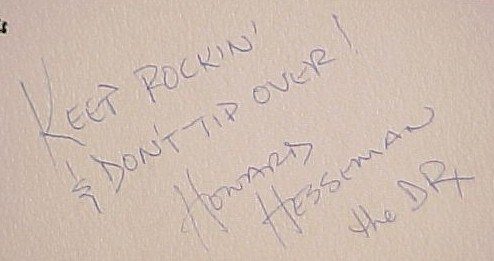 KEEP ROCKIN'
& DON'T TIP OVER!
HOWARD
HESSEMAN
the DR